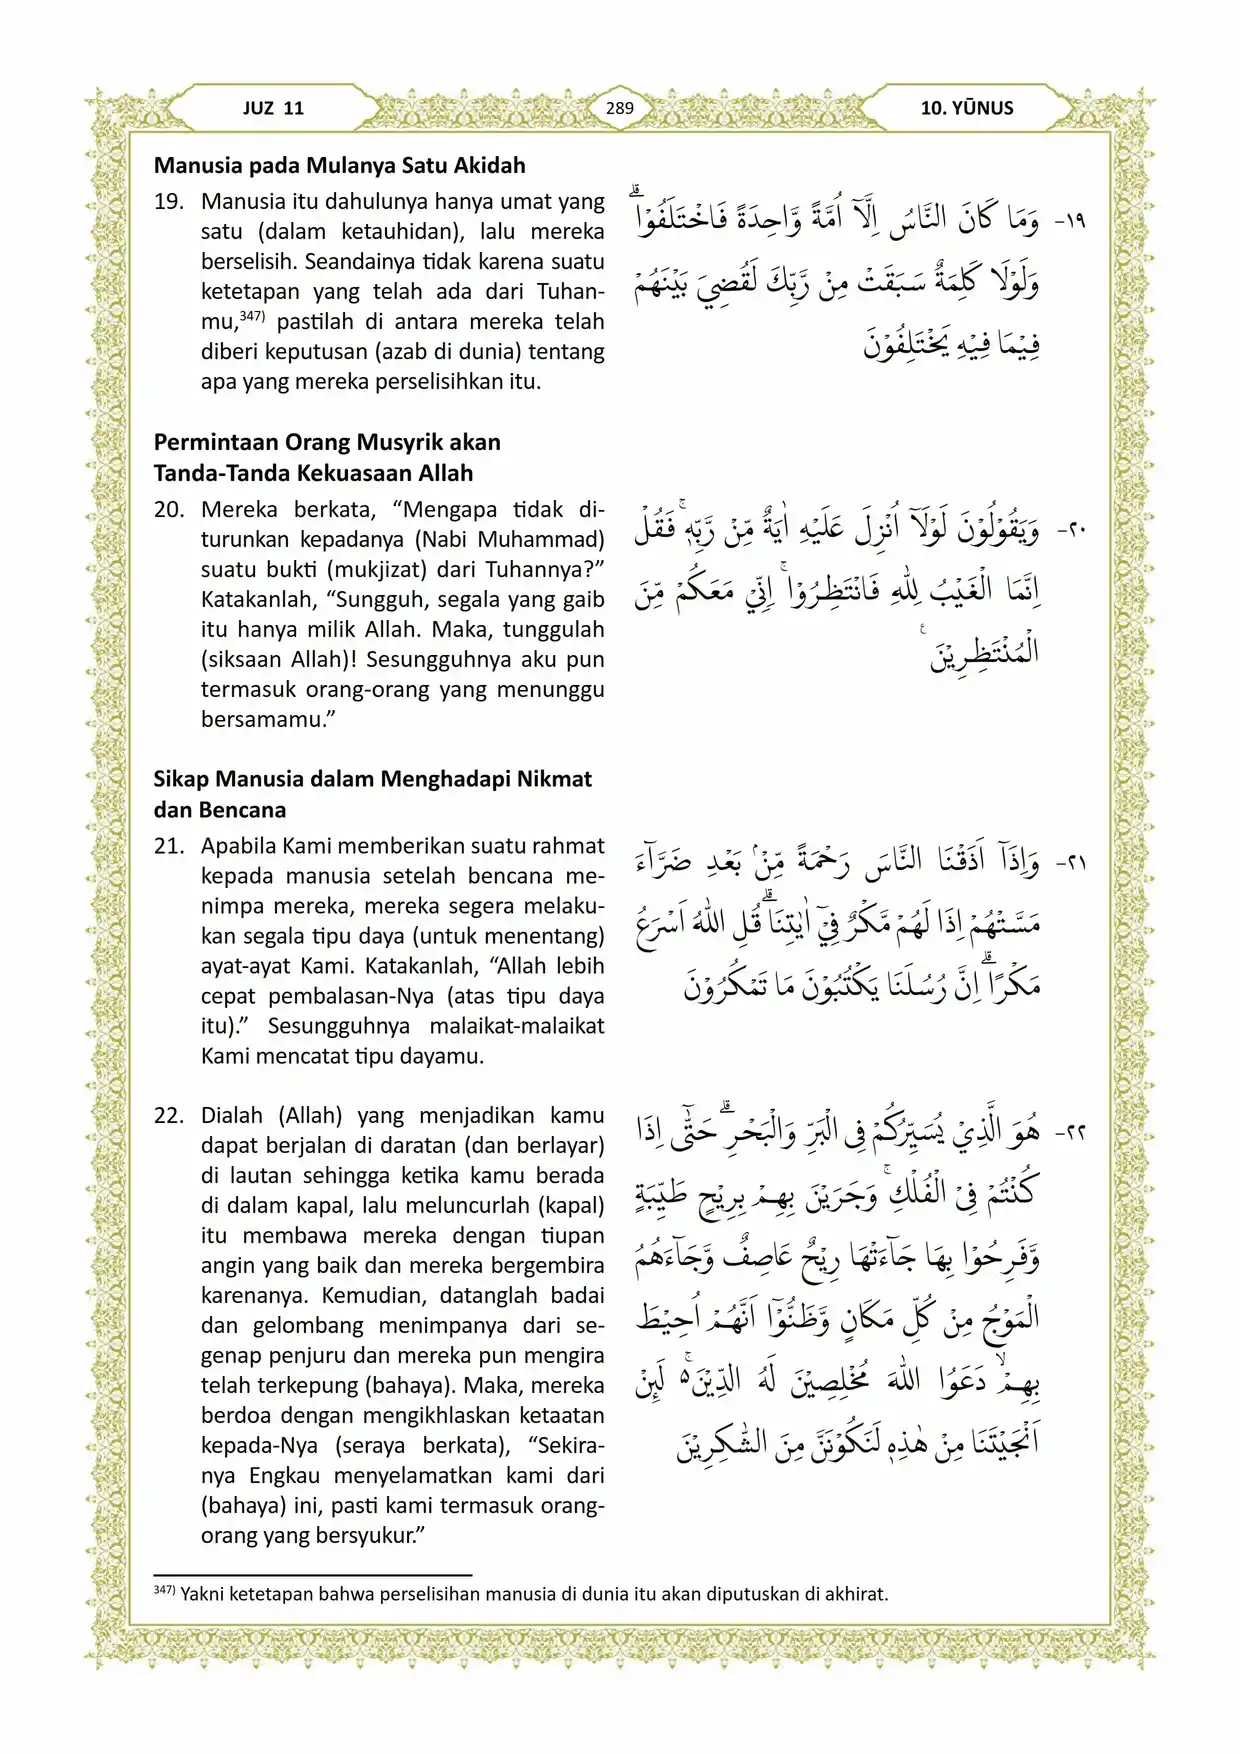 JUZ 11
289
10. YŪNUS
Manusia pada Mulanya Satu Akidah
19. Manusia itu dahulunya hanya umat yang
satu (dalam ketauhidan), lalu mereka
berselisih. Seandainya tidak karena suatu
ketetapan yang telah ada dari Tuhan-
mu,347) pastilah di antara mereka telah
diberi keputusan (azab di dunia) tentang
apa yang mereka perselisihkan itu.
١٩- وَمَا كَانَ النَّاسُ اِلَّآ اُمَّةً وَّاحِدَةً فَاخْتَلَفُوْاۗ
وَلَوْلَا كَلِمَةٌ سَبَقَتْ مِنْ رَّبِّكَ لَقُضِيَ بَيْنَهُمْ
فِيْمَا فِيْهِ يَخْتَلِفُوْنَ
Permintaan Orang Musyrik akan
Tanda-Tanda Kekuasaan Allah
20. Mereka berkata, “Mengapa tidak di-
turunkan kepadanya (Nabi Muhammad)
suatu bukti (mukjizat) dari Tuhannya?”
Katakanlah, “Sungguh, segala yang gaib
itu hanya milik Allah. Maka, tunggulah
(siksaan Allah)! Sesungguhnya aku pun
termasuk orang-orang yang menunggu
bersamamu.”
٢٠- وَيَقُوْلُوْنَ لَوْلَآ اُنْزِلَ عَلَيْهِ اٰيَةٌ مِّنْ رَّبِّهٖۚ فَقُلْ
اِنَّمَا الْغَيْبُ لِلّٰهِ فَانْتَظِرُوْاۚ اِنِّيْ مَعَكُمْ مِّنَ
الْمُنْتَظِرِيْنَ ࣖ
Sikap Manusia dalam Menghadapi Nikmat
dan Bencana
21. Apabila Kami memberikan suatu rahmat
kepada manusia setelah bencana me-
nimpa mereka, mereka segera melaku-
kan segala tipu daya (untuk menentang)
ayat-ayat Kami. Katakanlah, “Allah lebih
cepat pembalasan-Nya (atas tipu daya
itu).” Sesungguhnya malaikat-malaikat
Kami mencatat tipu dayamu.
٢١- وَاِذَآ اَذَقْنَا النَّاسَ رَحْمَةً مِّنْۢ بَعْدِ ضَرَّاۤءَ
مَسَّتْهُمْ اِذَا لَهُمْ مَّكْرٌ فِيْٓ اٰيٰتِنَاۗ قُلِ اللّٰهُ اَسْرَعُ
مَكْرًاۗ اِنَّ رُسُلَنَا يَكْتُبُوْنَ مَا تَمْكُرُوْنَ
22. Dialah (Allah) yang menjadikan kamu
dapat berjalan di daratan (dan berlayar)
di lautan sehingga ketika kamu berada
di dalam kapal, lalu meluncurlah (kapal)
itu membawa mereka dengan tiupan
angin yang baik dan mereka bergembira
karenanya. Kemudian, datanglah badai
dan gelombang menimpanya dari se-
genap penjuru dan mereka pun mengira
telah terkepung (bahaya). Maka, mereka
berdoa dengan mengikhlaskan ketaatan
kepada-Nya (seraya berkata), “Sekira-
nya Engkau menyelamatkan kami dari
(bahaya) ini, pasti kami termasuk orang-
orang yang bersyukur.”
٢٢- هُوَ الَّذِيْ يُسَيِّرُكُمْ فِى الْبَرِّ وَالْبَحْرِۗ حَتّٰٓى اِذَا
كُنْتُمْ فِى الْفُلْكِۚ وَجَرَيْنَ بِهِمْ بِرِيْحٍ طَيِّبَةٍ
وَّفَرِحُوْا بِهَا جَاۤءَتْهَا رِيْحٌ عَاصِفٌ وَّجَاۤءَهُمُ
الْمَوْجُ مِنْ كُلِّ مَكَانٍ وَّظَنُّوْٓا اَنَّهُمْ اُحِيْطَ
بِهِمْۙ دَعَوُا اللّٰهَ مُخْلِصِيْنَ لَهُ الدِّيْنَ ەۚ لَىِٕنْ
اَنْجَيْتَنَا مِنْ هٰذِهٖ لَنَكُوْنَنَّ مِنَ الشّٰكِرِيْنَ
347) Yakni ketetapan bahwa perselisihan manusia di dunia itu akan diputuskan di akhirat.